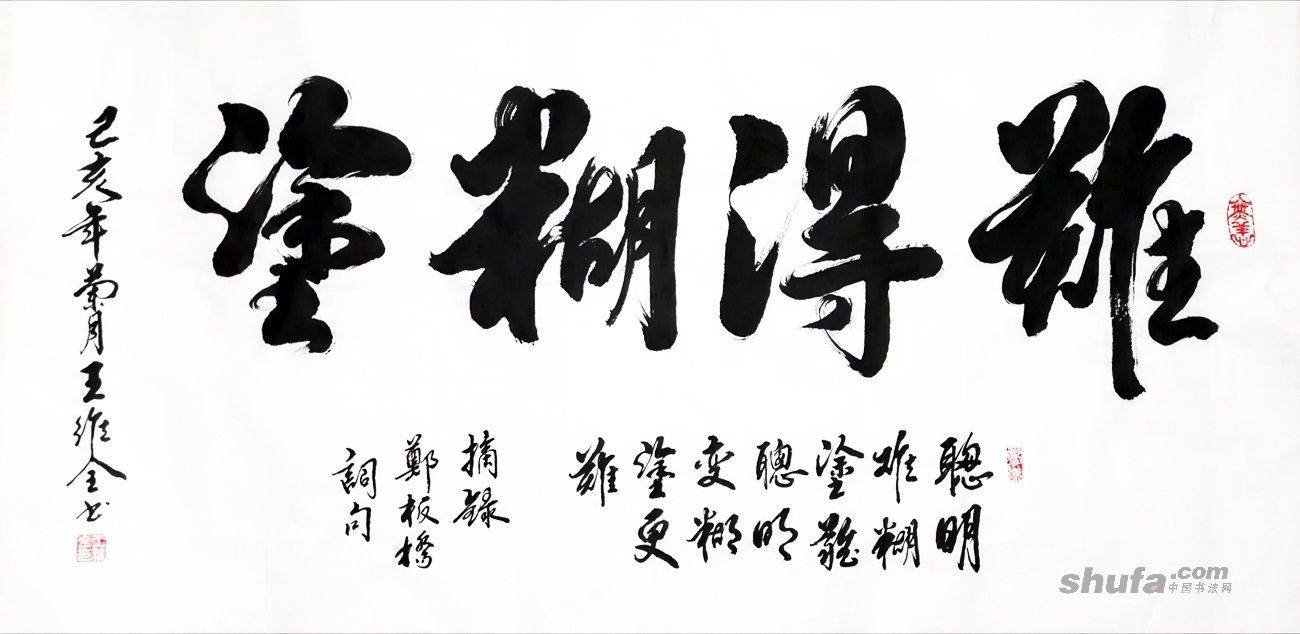 難得糊塗
聰明
难糊
塗難
聰明
变糊
塗更
難
摘録
鄭板橋
詞句
己亥年菊月王維全书
shufa.com
中国书法网